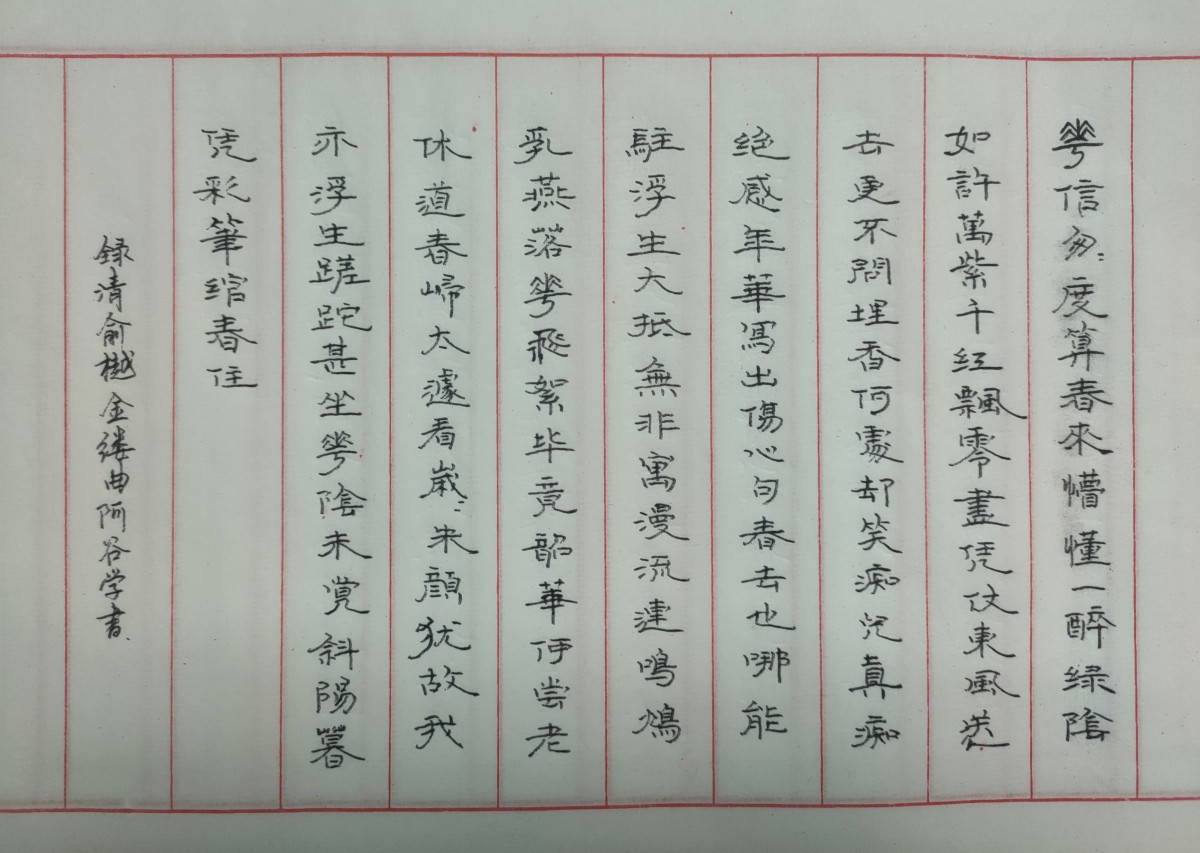 花信匆〻度算春來懵懂一醉绿陰
如許萬紫千红飄零盡凭仗東風送
去更不問埋香何處却笑痴兒真痴
绝感年華寫出傷心句春去也哪能
駐浮生大抵無非寓漫流連鳴鳩
乳燕落花飛絮毕竟韶華何尝老
休道春歸太遽看歲〻朱顔犹故我
亦浮生蹉跎甚坐花陰未觉斜陽暮
凭彩筆绾春住
録清俞樾金缕曲阿谷学書